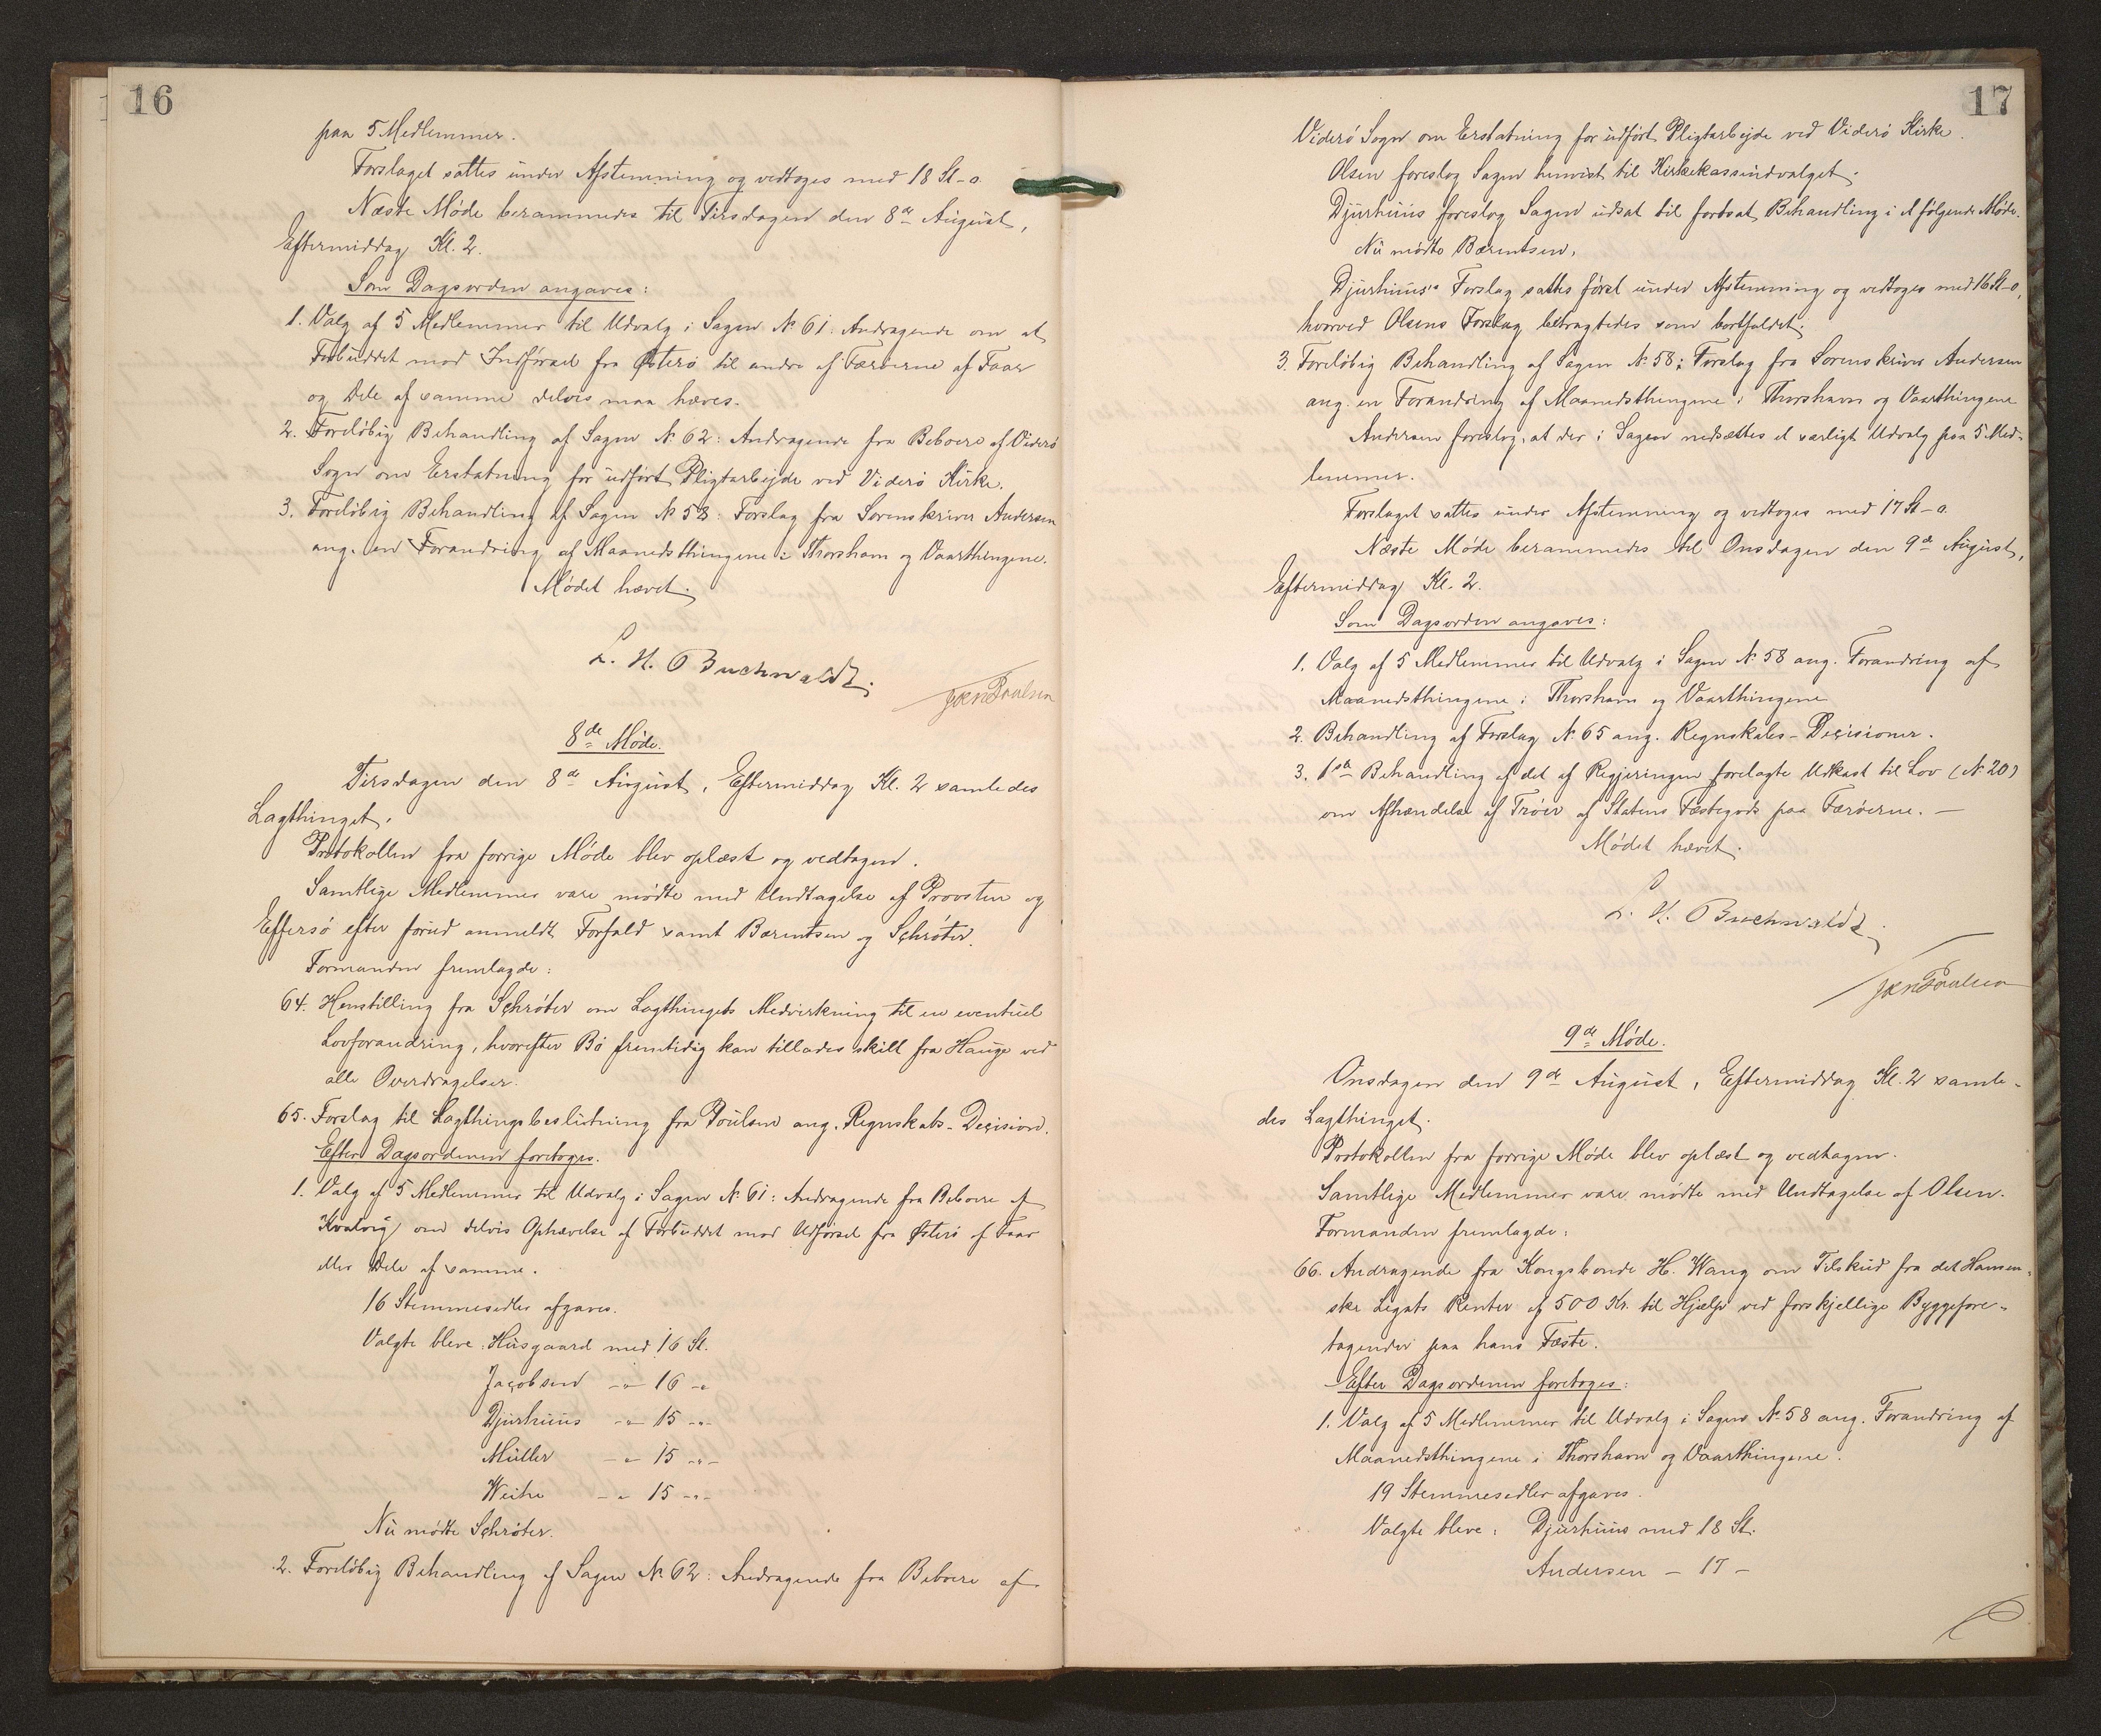 16
paa 5 Medlemmer.
Forslaget sattes under Afstemning og vedtoges med 18 St-o.
Næste Møde berammedes til Tirsdagen den 8de August,
Eftermiddag Kl. 2.
Som Dagsorden angaves:
1. Valg af 5 Medlemmer til Udvalg i Sagen No 61: Andragende om at
Forbuddet mod Indførsel fra Østerø til andre af Færøerne af Faar
og Dele af samme delvis maa hæves.
2. Foreløbig Behandling af Sagen No 62: Andragende fra Beboere af Viderø
Sogn om Erstatning for udført Pligtarbejde ved Viderø Kirke.
3. Foreløbig Behandling af Sagen No 58: Forslag fra Sorenskriver Andersen
ang. en Forandring af Maanedsthingene i Thorshavn og Vaarthingene.
Mødet hævet.
L. H. Buchwaldt.
Poulsen
8de Møde.
Tirsdagen den 8de August, Eftermiddag Kl. 2 samledes
Lagthinget.
Protokollen fra forrige Møde blev oplæst og vedtagen.
Samtlige Medlemmer vare mødte med Undtagelse af Provsten og
Effersø efter forud anmeldt Forfald samt Bærentsen og Schrøter.
Formanden fremlagde:
64. Henstilling fra Schrøter om Lagthingets Medvirkning til en eventuel
Lovforandring, hvorefter Bø fremtidig kan tillades skilt fra Hauge ved
alle Overdragelser.
65. Forslag til Lagthingsbeslutning fra Poulsen ang. Regnskabs-Decision.
Efter Dagsordenen foretoges.
1. Valg af 5 Medlemmer til Udvalg i Sagen No 61: Andragende fra Beboere af
Kvalvig om delvis Ophævelse af Forbuddet mod Udførsel fra Østerø af Faar
eller Dele af samme.
16 Stemmesedler afgaves.
Valgte bleve: Husgaard med 16 St.
Jacobsen -"- 16 -"
Djurhuus -"- 15 -"-
Müller -"- 15 -"-
Weihe -"- 15 -"-
Nu mødte Schrøter.
2. Foreløbig Behandling af Sagen No 62: Andragende fra Beboere af
17
Viderø Sogn om Erstatning for udført Pligtarbejde ved Viderø Kirke.
Olsen foreslog Sagen henvist til Kirkekasseudvalget.
Djurhuus foreslog Sagen udsat til fortsat Behandling i et følgende Møde.
Nu mødte Bærentsen.
Djurhuus's Forslag sattes først under Afstemning og vedtoges med 16 St-o,
hvorved Olsens Forslag betragtedes som bortfaldet.
3. Foreløbig Behandling af Sagen No 58: Forslag fra Sorenskriver Andersen
ang. en Forandring af Maanedsthingene i Thorshavn og Vaarthingene
Andersen foreslog, at der i Sagen nedsættes et særligt Udvalg paa 5 Med-
lemmer.
Forslaget sattes under Afstemning og vedtoges med 17 St-o.
Næste Møde berammedes til Onsdagen den 9de August,
Eftermiddag Kl. 2.
Som Dagsorden angaves:
1. Valg af 5 Medlemmer til Udvalg i Sagen No 58 ang. Forandring af
Maanedsthingene i Thorshavn og Vaarthingene
2. Behandling af Forslag No 65 ang. Regnskabs-Decisioner.
3. 1ste Behandling af det af Regjeringen forelagte Udkast til Lov (No 20)
om Afhændelse af Trøer af Statens Fæstegods paa Færøerne. —
Mødet hævet.
L. H. Buchwaldt
Poulsen
9de Møde.
Onsdagen den 9de August, Eftermiddag Kl. 2 samle-
des Lagthinget.
Protokollen fra forrige Møde blev oplæst og vedtagen.
Samtlige Medlemmer vare mødte med Undtagelse af Olsen.
Formanden fremlagde:
66. Andragende fra Kongsbonde H. Wang om Tilskud fra det Hansen-
ske Legats Renter af 500 Kr. til Hjælp ved forskjellige Byggefore-
tagender paa hans Fæste.
Efter Dagsordenen foretoges:
1. Valg af 5 Medlemmer til Udvalg i Sagen No 58 ang. Forandring af
Maanedsthingene i Thorshavn og Vaarthingene.
19 Stemmesedler afgaves.
Valgte bleve: Djurhuus med 18 St.
Andersen - 17 -